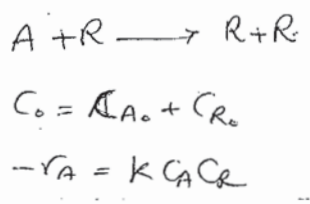 A + R ⟶ R + R.
C₀ = C_A₀ + C_R₀
-r_A = K C_A C_R